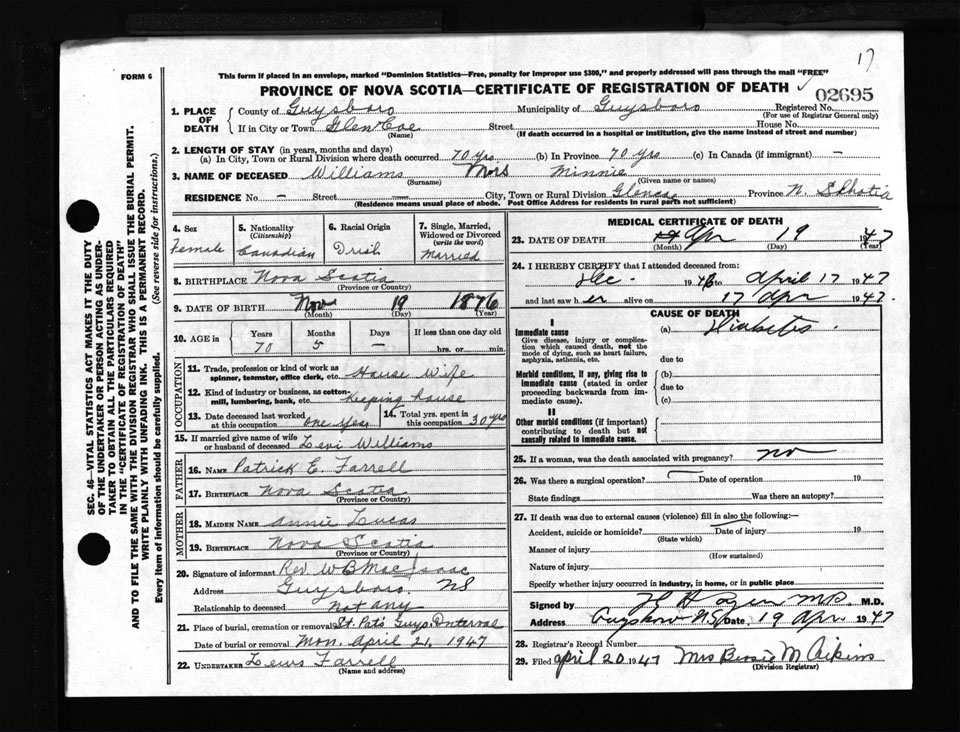 17
FORM 6
This form if placed in an envelope, marked "Dominion Statistics—Free, penalty for improper use $300," and properly addressed will pass through the mail "FREE"
PROVINCE OF NOVA SCOTIA—CERTIFICATE OF REGISTRATION OF DEATH
02695
SEC. 46—VITAL STATISTICS ACT MAKES IT THE DUTY
OF THE UNDERTAKER OR PERSON ACTING AS UNDER-
TAKER TO OBTAIN ALL THE PARTICULARS REQUIRED
IN THE "CERTIFICATE OF REGISTRATION OF DEATH"
AND TO FILE THE SAME WITH THE DIVISION REGISTRAR WHO SHALL ISSUE THE BURIAL PERMIT.
WRITE PLAINLY WITH UNFADING INK. THIS IS A PERMANENT RECORD.
Every item of information should be carefully supplied. (See reverse side for instructions.)
1. PLACE OF DEATH County of Guysboro Municipality of Guysboro Registered No.
(For use of Registrar General only)
If in City or Town Glen Coe Street House No.
(Name) (If death occurred in a hospital or institution, give the name instead of street and number)
2. LENGTH OF STAY (in years, months and days)
(a) In City, Town or Rural Division where death occurred 70 yrs (b) In Province 70 yrs (c) In Canada (if immigrant) —
3. NAME OF DECEASED Williams Mrs Minnie
(Surname) (Given name or names)
RESIDENCE No — Street — City, Town or Rural Division Glencoe Province N. Scotia
(Residence means usual place of abode. Post Office Address for residents in rural parts not sufficient)
4. Sex Female
5. Nationality (Citizenship) Canadian
6. Racial Origin Irish
7. Single, Married, Widowed or Divorced (write the word) Married
8. BIRTHPLACE Nova Scotia
(Province or Country)
9. DATE OF BIRTH Nov 19 1876
(Month) (Day) (Year)
10. AGE in Years Months Days If less than one day old
70 5 — hrs. or min.
OCCUPATION
11. Trade, profession or kind of work as spinner, teamster, office clerk, etc. House Wife
12. Kind of industry or business, as cotton-mill, lumbering, bank, etc. Keeping house
13. Date deceased last worked at this occupation one year
14. Total yrs. spent in this occupation 30 yrs
15. If married give name of wife or husband of deceased Levi Williams
FATHER
16. NAME Patrick E. Farrell
17. BIRTHPLACE Nova Scotia
(Province or Country)
MOTHER
18. MAIDEN NAME Annie Lucas
19. BIRTHPLACE Nova Scotia
(Province or Country)
20. Signature of informant Rev. W B MacIsaac
Address Guysboro NS
Relationship to deceased not any
21. Place of burial, cremation or removal St. Pat's Guys. Interval
Date of burial or removal Mon. April 21, 1947
22. UNDERTAKER Lewis Farrell
(Name and address)
MEDICAL CERTIFICATE OF DEATH
23. DATE OF DEATH Apr 19 1947
(Month) (Day) (Year)
24. I HEREBY CERTIFY that I attended deceased from:
Dec 1946 to April 17 1947
and last saw h er alive on 17 Apr 1947.
CAUSE OF DEATH
I
Immediate cause (a) Diabetes.
Give disease, injury or complication which caused death, not the mode of dying, such as heart failure, asphyxia, asthenia, etc.
due to
Morbid conditions, if any, giving rise to immediate cause (stated in order proceeding backwards from immediate cause). (b)
due to
(c)
II
Other morbid conditions (if important) contributing to death but not causally related to immediate cause.
25. If a woman, was the death associated with pregnancy? no
26. Was there a surgical operation? Date of operation 19
State findings Was there an autopsy?
27. If death was due to external causes (violence) fill in also the following:—
Accident, suicide or homicide? Date of injury 19
(State which)
Manner of injury
(How sustained)
Nature of injury
Specify whether injury occurred in industry, in home, or in public place
Signed by M.D.
Address Guysboro N.S. Date 19 Apr 1947
28. Registrar's Record Number
29. Filed April 20 1947 Mrs Bessie M Aikins
(Division Registrar)